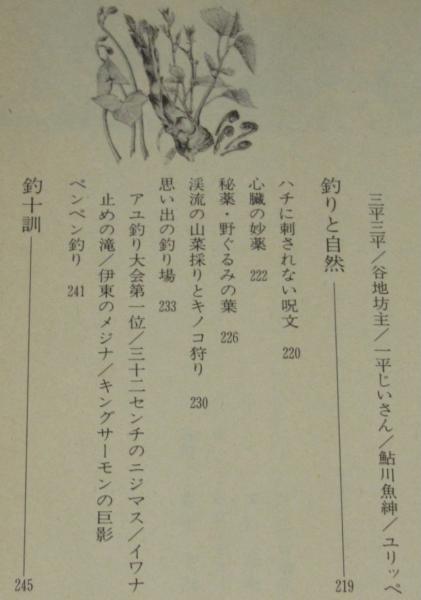 三平三平／谷地坊主／一平じいさん／鮎川魚紳／ユリッペ
釣りと自然 219
ハチに刺されない呪文 220
心臓の妙薬 222
秘薬・野ぐるみの葉 226
渓流の山菜採りとキノコ狩り 230
思い出の釣り場 233
アユ釣り大会第一位／三十二センチのニジマス／イワナ
止めの滝／伊東のメジナ／キングサーモンの巨影
ペンペン釣り 241
釣十訓 245